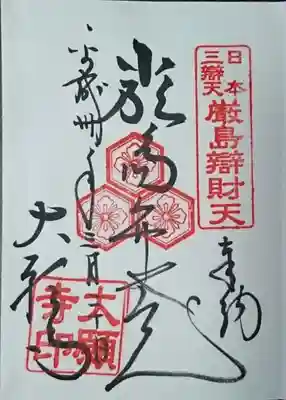 日本
三辯天
厳島辯財天
奉納
厳島弁才天
平成卅年三月
大願寺
大願寺印